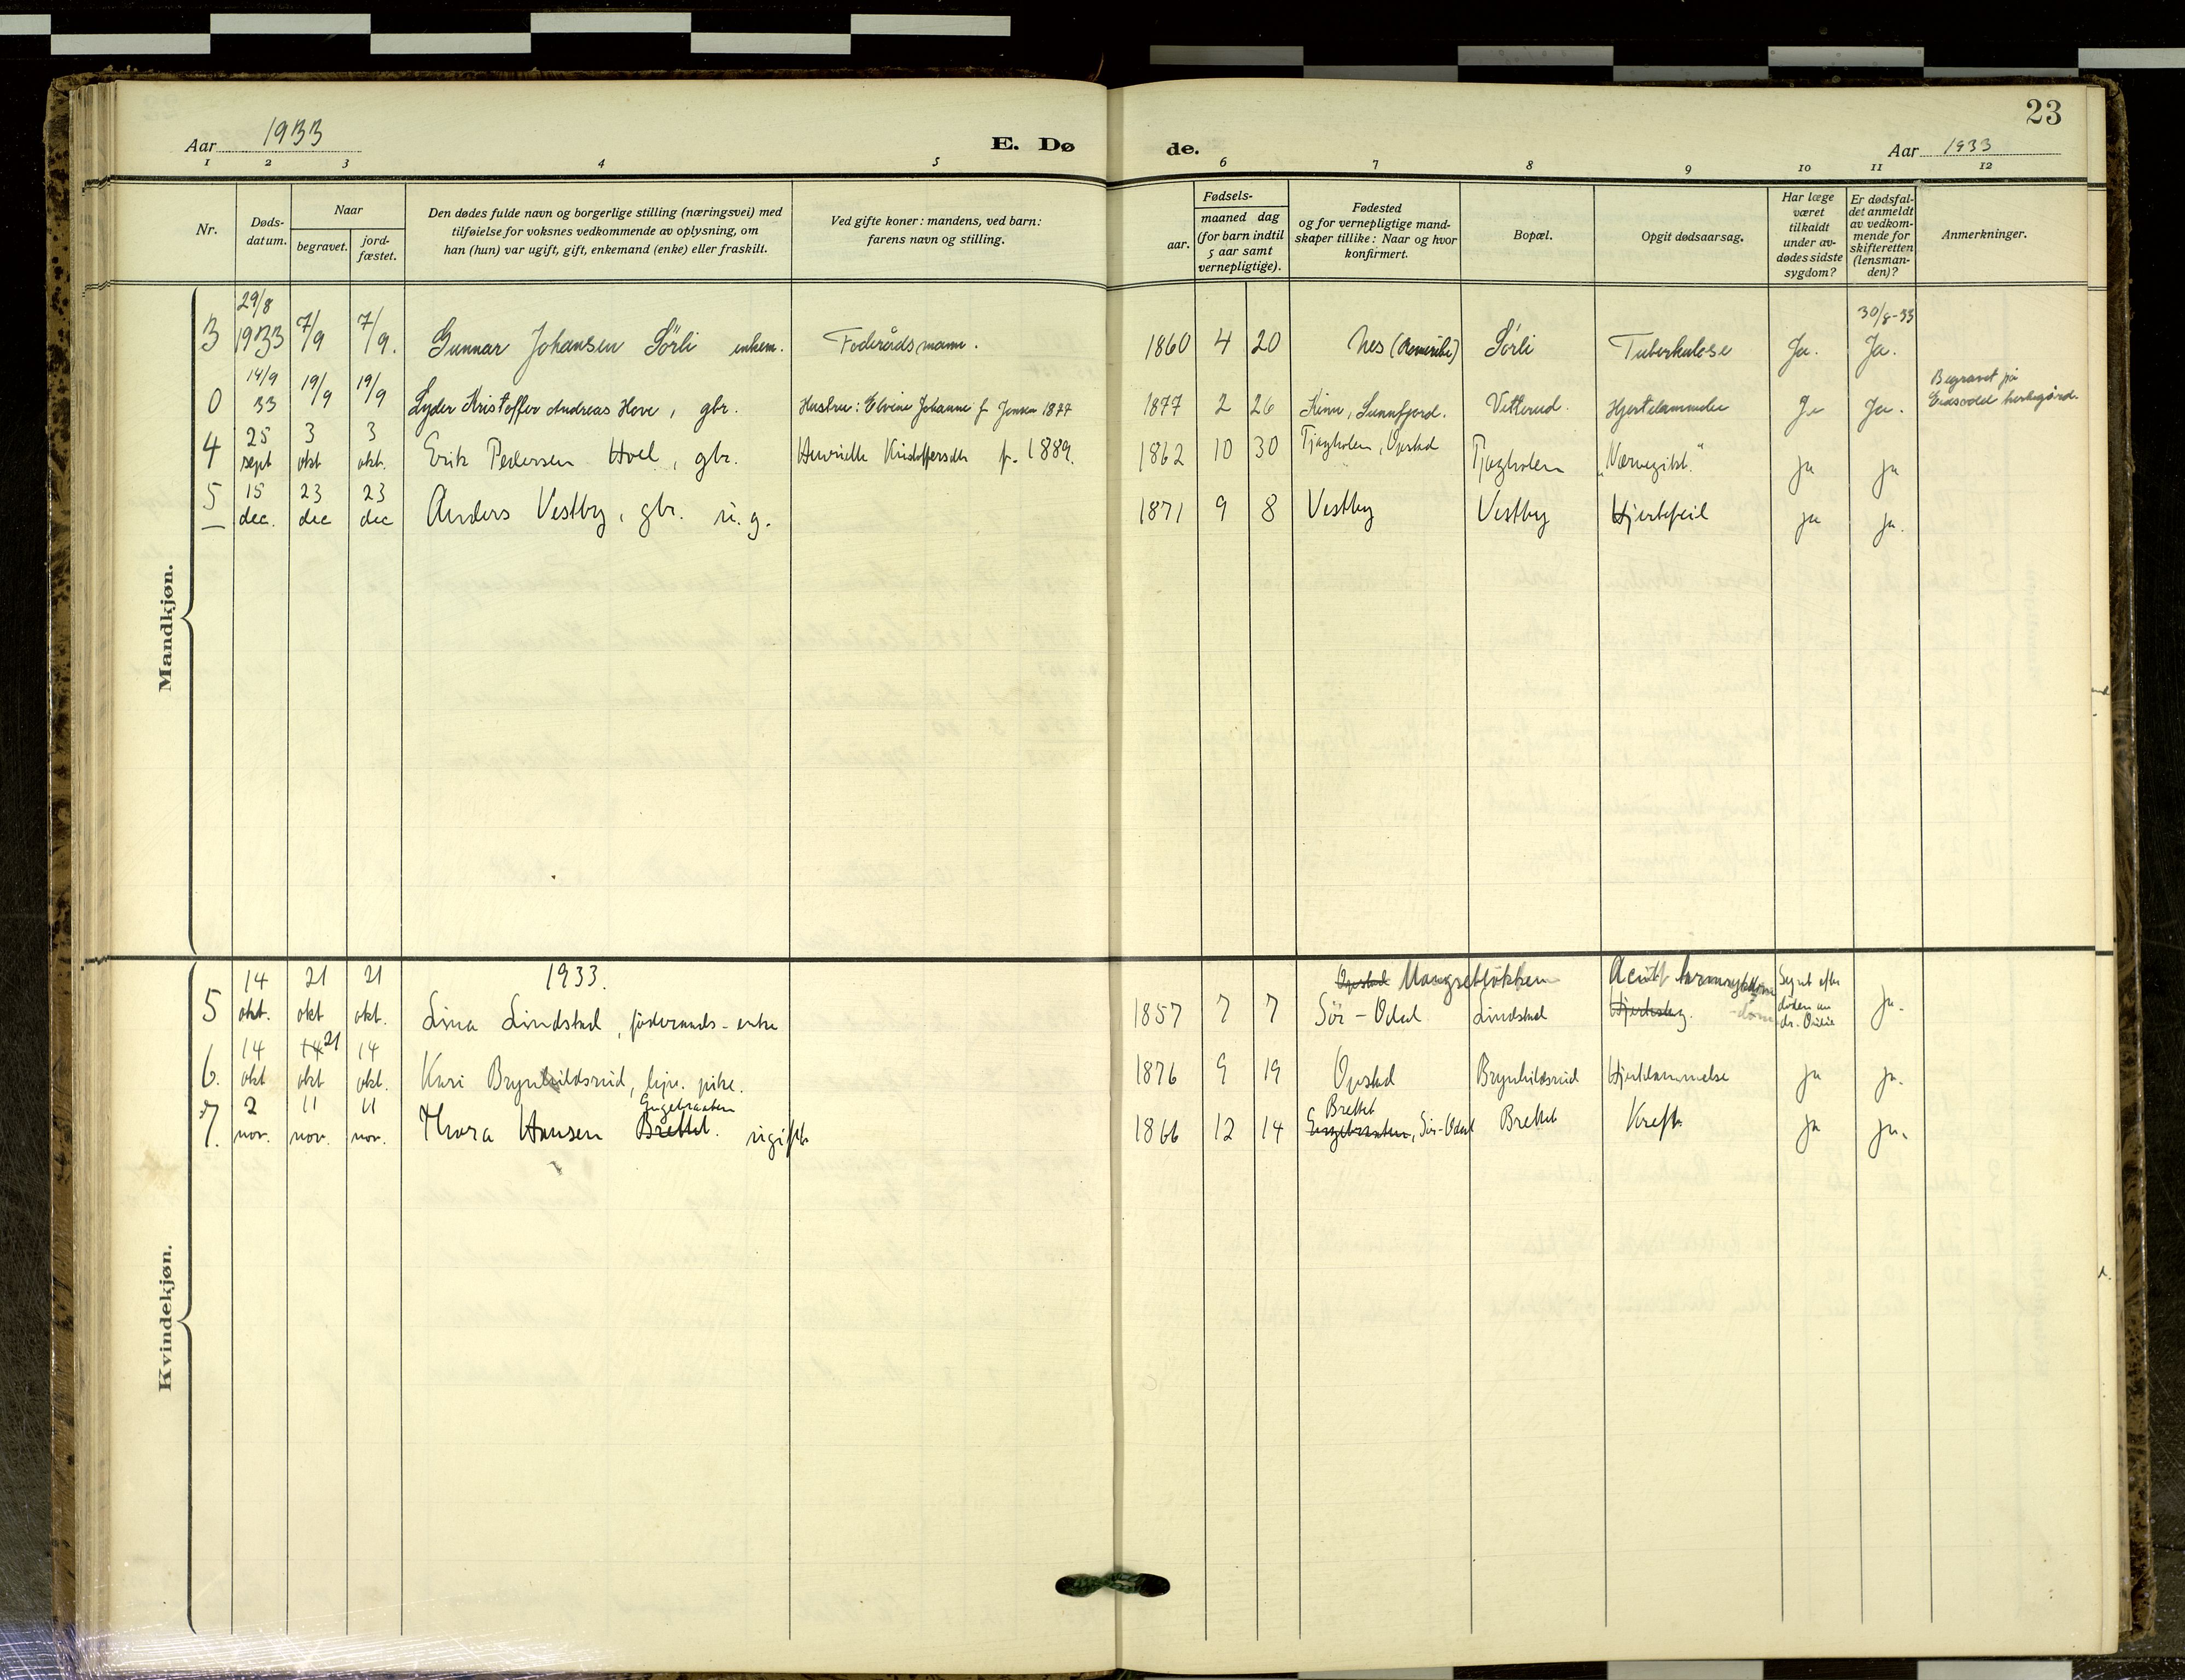 23
Aar 1933
E. Dø
de.
Aar 1933
1 2 3 4 5 6 7 8 9 10 11 12
Nr.
Døds-
datum.
Naar
begravet.
jord-
fæstet.
Den dødes fulde navn og borgerlige stilling (næringsvei) med
tilføielse for voksnes vedkommende av oplysning, om
han (hun) var ugift, gift, enkemand (enke) eller fraskilt.
Ved gifte koner: mandens, ved barn:
farens navn og stilling.
aar.
Fødsels-
maaned dag
(for barn indtil
5 aar samt
vernepligtige).
Fødested
og for vernepligtige mand-
skaper tillike: Naar og hvor
konfirmert.
Bopæl.
Opgit dødsaarsag.
Har læge
været
tilkaldt
under av-
dødes sidste
sygdom?
Er dødsfal-
det anmeldt
av vedkom-
mende for
skifteretten
(lensman-
den)?
Anmerkninger.
Mandkjøn.
29/8 30/8-33
3 1933 7/9 7/9. Gunnar Johansen Sörli enkem. Foderådsmann. 1860 4 20 Nes (Romerike) Sörli Tuberkulose Ja. Ja.
14/9 Begravet på
0 33 19/9 19/9 Lyder Kristoffer Andreas Hove, gbr. Hustru: Elvine Johanne f. Jensen 1877 1877 2 26 Kinn, Sunnfjord. Vitterud. Hjertelammelse Ja Ja. Eidsvold kirkegård.
4 25 sept 3 okt 3 okt. Erik Pedersen Hoel, gbr. Kristoffersdtr f. 1889. 1862 10 30 Tjagholen, Opstad Tjagholen ja ja
5 15 dec. 23 dec 23 dec Anders Vestby, gbr. u. g. 1871 9 8 Vestby Vestby Hjertefeil ja ja.
Kvindekjøn.
1933.
5 14 okt. 21 okt 21 okt. Lina Lindstad, föderaads-enke 1857 7 7 Opstad Sör-Odal Lindstad Acutt Hjerteslag. Synt efter döden av dr. ja.
6. 14 okt 14 21 okt 14 okt. Kari Brynhildsrud, pike. 1876 9 19 Opstad Brynhildsrud Hjertelammelse ja ja.
7. 2 nov. 11 nov. 11 nov. Thora Hansen Brettet. Engebraaten ugift 1866 12 14 Brettet Engebraaten, Sör-Odal Brettet Kreft ja ja.